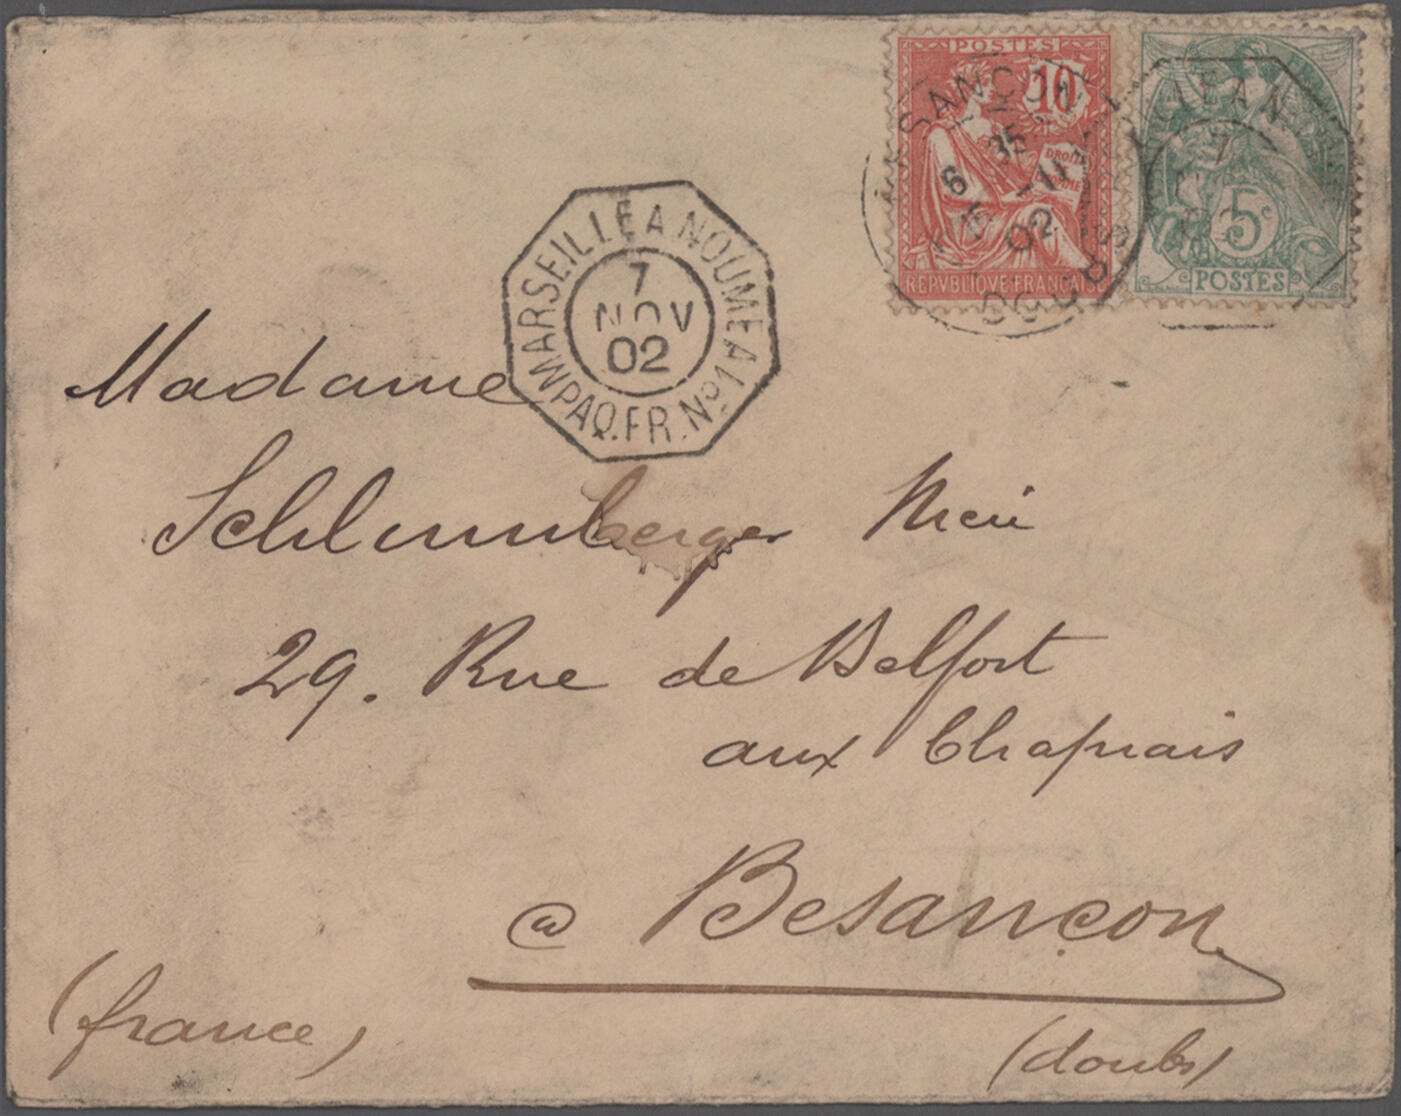 POSTES
10
DROITS
REPVBLIQVE FRANÇAISE
5c
POSTES
BESANCON
6 35
15 -11
02
DOUBS
MARSEILLE A NOUMEA
7
NOV
02
PAQ. FR. No 1
Madame
Schlumberger
29. Rue de Belfort
aux Chaprais
a Besançon
(france)
(doubs)